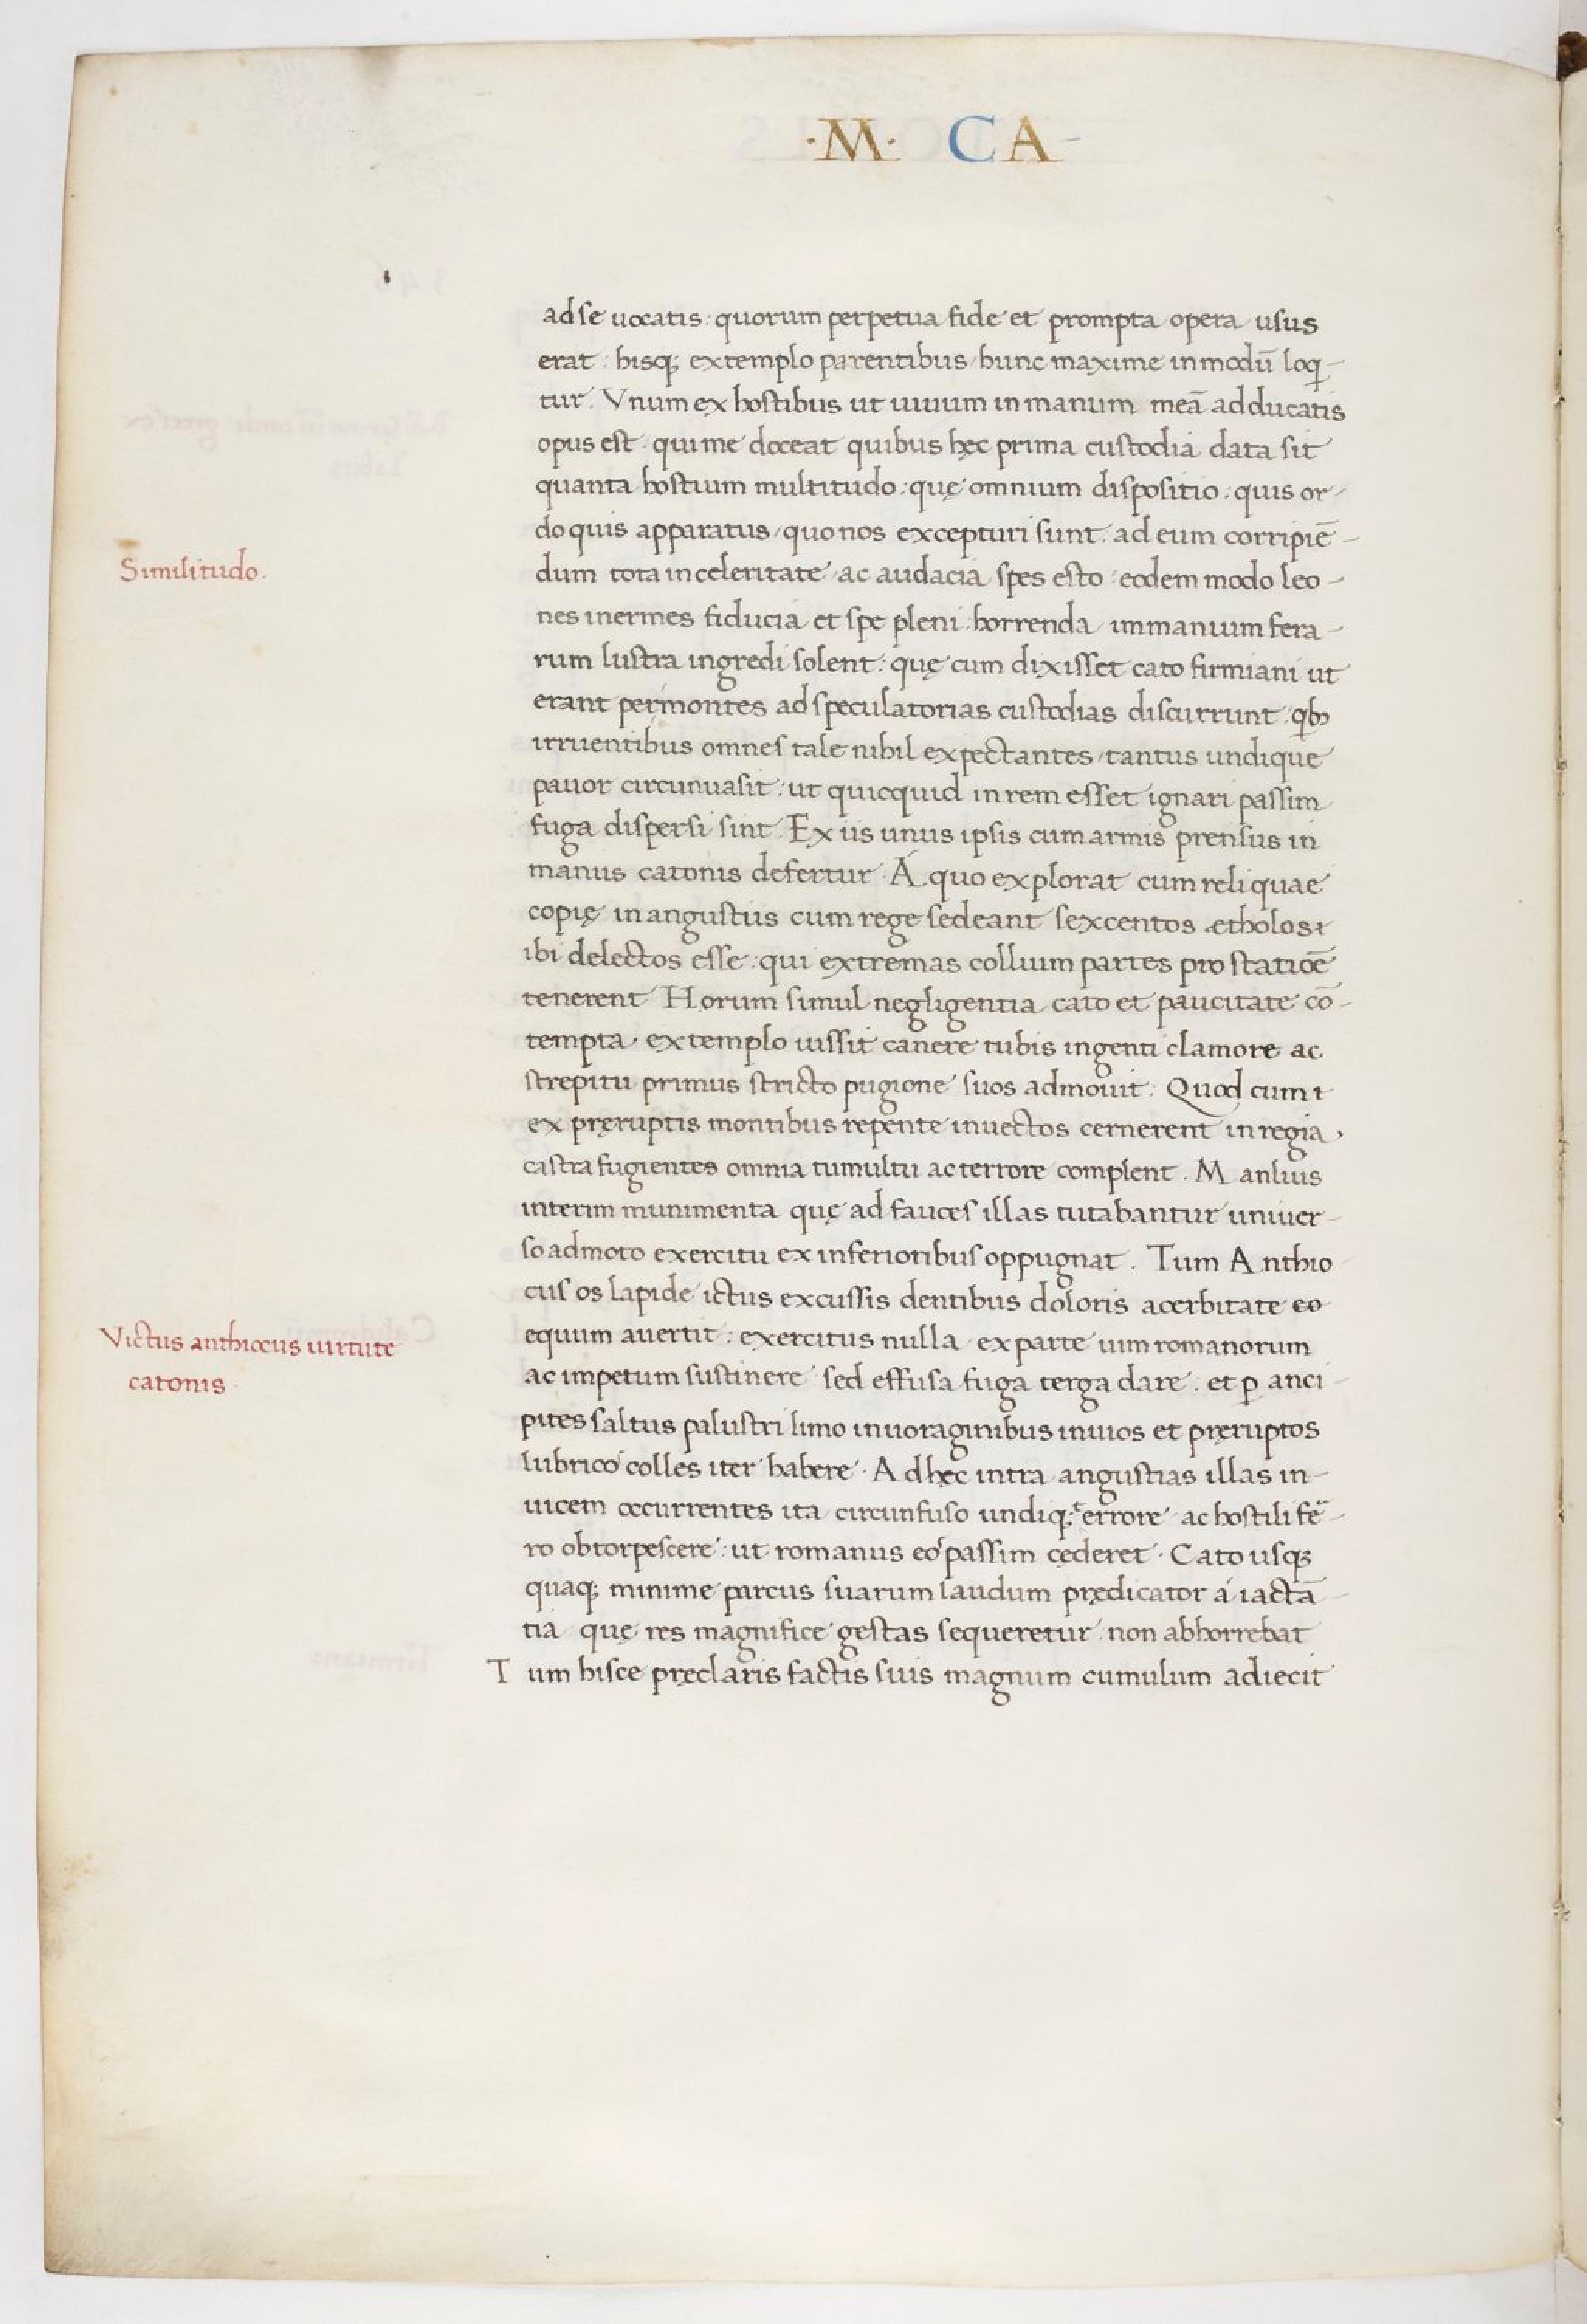 ·M· CA
ad se uocatis: quorum perpetua fide et prompta opera usus
erat: hisq; extemplo parentibus/hunc maxime in modū loq̣-
tur. Vnum ex hostibus ut uiuum in manum meā adducatis
opus est: qui me doceat quibus hęc prima custodia data sit
quanta hostium multitudo: quę omnium dispositio: quis or-
do quis apparatus/quo nos excepturi sunt: ad eum corripiē-
Similitudo.
dum tota in celeritate/ac audacia spes esto: eodem modo leo-
nes inermes fiducia et spe pleni: horrenda immanium fera-
rum lustra ingredi solent: quę cum dixisset cato firmiani ut
erant per montes ad speculatorias custodias discurrunt: qb;
irruentibus omnes tale nihil expectantes/tantus undique
pauor circunuasit: ut quicquid in rem esset ignari passim
fuga dispersi sint. Ex iis unus ipsis cum armis prensus in
manus catonis defertur. A quo explorat cum reliquae
copię in angustiis cum rege sedeant sexcentos ætholos
ibi delectos esse: qui extremas collium partes pro statiōe
tenerent Horum simul negligentia cato et paucitate cō-
tempta· extemplo iussit canere tubis ingenti clamore ac
strepitu primus stricto pugione suos admouit: Quod cum
ex pręruptis montibus repente inuectos cernerent in regia
castra fugientes omnia tumultu ac terrore complent. Manlius
interim munimenta quę ad fauces illas tutabantur uniuer-
so admoto exercitu ex inferioribus oppugnat. Tum Anthio
cus os lapide ictus excussis dentibus doloris acerbitate eo
Victus anthiocus uirtute
catonis
equum auertit: exercitus nulla ex parte uim romanorum
ac impetum sustinere sed effusa fuga terga dare. et ꝑ anci-
pites saltus palustri limo in uoraginibus inuios et pręruptos
lubrico colles iter habere. Ad hęc intra angustias illas in-
uicem occurrentes ita circunfuso undiq; terrore ac hostili fe-
ro obtorpescere: ut romanus eos passim cęderet. Cato usq;
quaq; minime parcus suarum laudum prędicator a iactā-
tia quę res magnifice gestas sequeretur non abhorrebat
Tum hisce pręclaris factis suis magnum cumulum adiecit